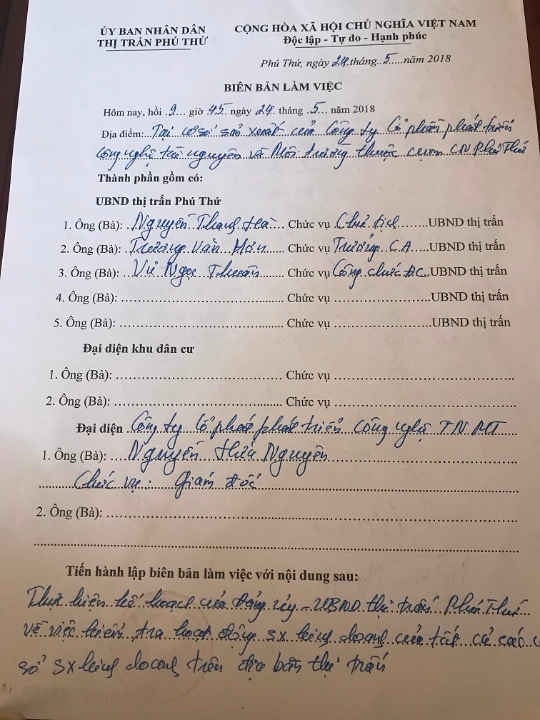 ỦY BAN NHÂN DÂN
THỊ TRẤN PHÚ THỨ
CỘNG HÒA XÃ HỘI CHỦ NGHĨA VIỆT NAM
Độc lập - Tự do - Hạnh phúc
Phú Thứ, ngày 24 tháng 5 năm 2018
BIÊN BẢN LÀM VIỆC
Hôm nay, hồi 9 giờ 45 ngày 24 tháng 5 năm 2018
Địa điểm: Tại cơ sở sản xuất của Công ty Cổ phần phát triển
Công nghệ tài nguyên và Môi trường thuộc cụm CN Phú Thứ
Thành phần gồm có:
UBND thị trấn Phú Thứ
1. Ông (Bà): Nguyễn Thanh Hà Chức vụ Chủ tịch UBND thị trấn
2. Ông (Bà): Trương Văn Chức vụ Trưởng C.A UBND thị trấn
3. Ông (Bà): Vũ Ngọc Chức vụ Công chức ĐC UBND thị trấn
4. Ông (Bà): Chức vụ UBND thị trấn
5. Ông (Bà): Chức vụ UBND thị trấn
Đại diện khu dân cư
1. Ông (Bà): Chức vụ
2. Ông (Bà): Chức vụ
Đại diện Công ty Cổ phần phát triển Công nghệ TN MT
1. Ông (Bà): Nguyễn Hữu Nguyên
Chức vụ: Giám đốc
2. Ông (Bà):
Tiến hành lập biên bản làm việc với nội dung sau:
Thực hiện kế hoạch của Đảng ủy - UBND thị trấn Phú Thứ
về việc kiểm tra hoạt động sx kinh doanh của tất cả các cơ
sở sx kinh doanh trên địa bàn thị trấn